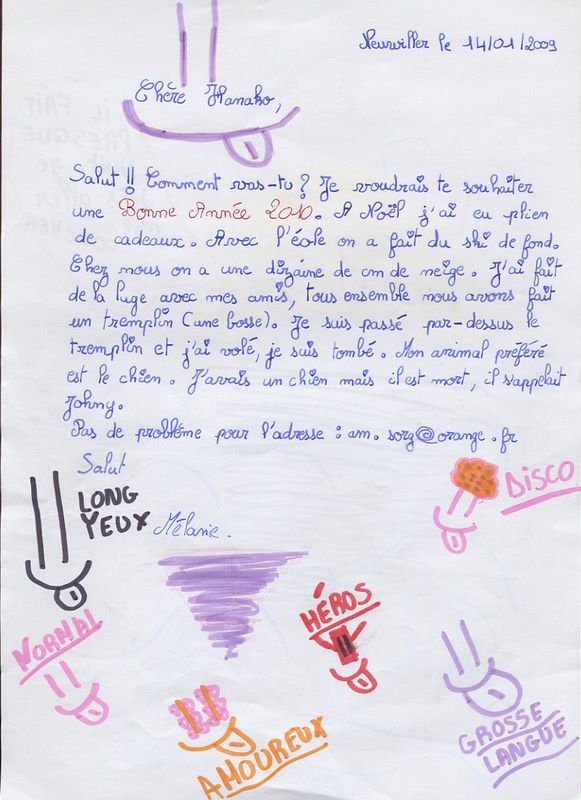 Neuwiller le 14/01/2009
Chère Hanako,
Salut !! Comment vas-tu ? Je voudrais te souhaiter
une Bonne Année 2010. A Noël j'ai eu plien
de cadeaux. Avec l'école on a fait du ski de fond.
Chez nous on a une dizaine de cm de neige. J'ai fait
de la luge avec mes amis, tous ensemble nous avons fait
un tremplin (une bosse). Je suis passé par-dessus le
tremplin et j'ai volé, je suis tombé. Mon animal préféré
est le chien. J'avais un chien mais il est mort, il s'appelait
Johny.
Pas de problème pour l'adresse : am.sorg@orange.fr
Salut
Mélanie.
LONG
YEUX
DISCO
HÉROS
NORMAL
AMOUREUX
GROSSE
LANGUE